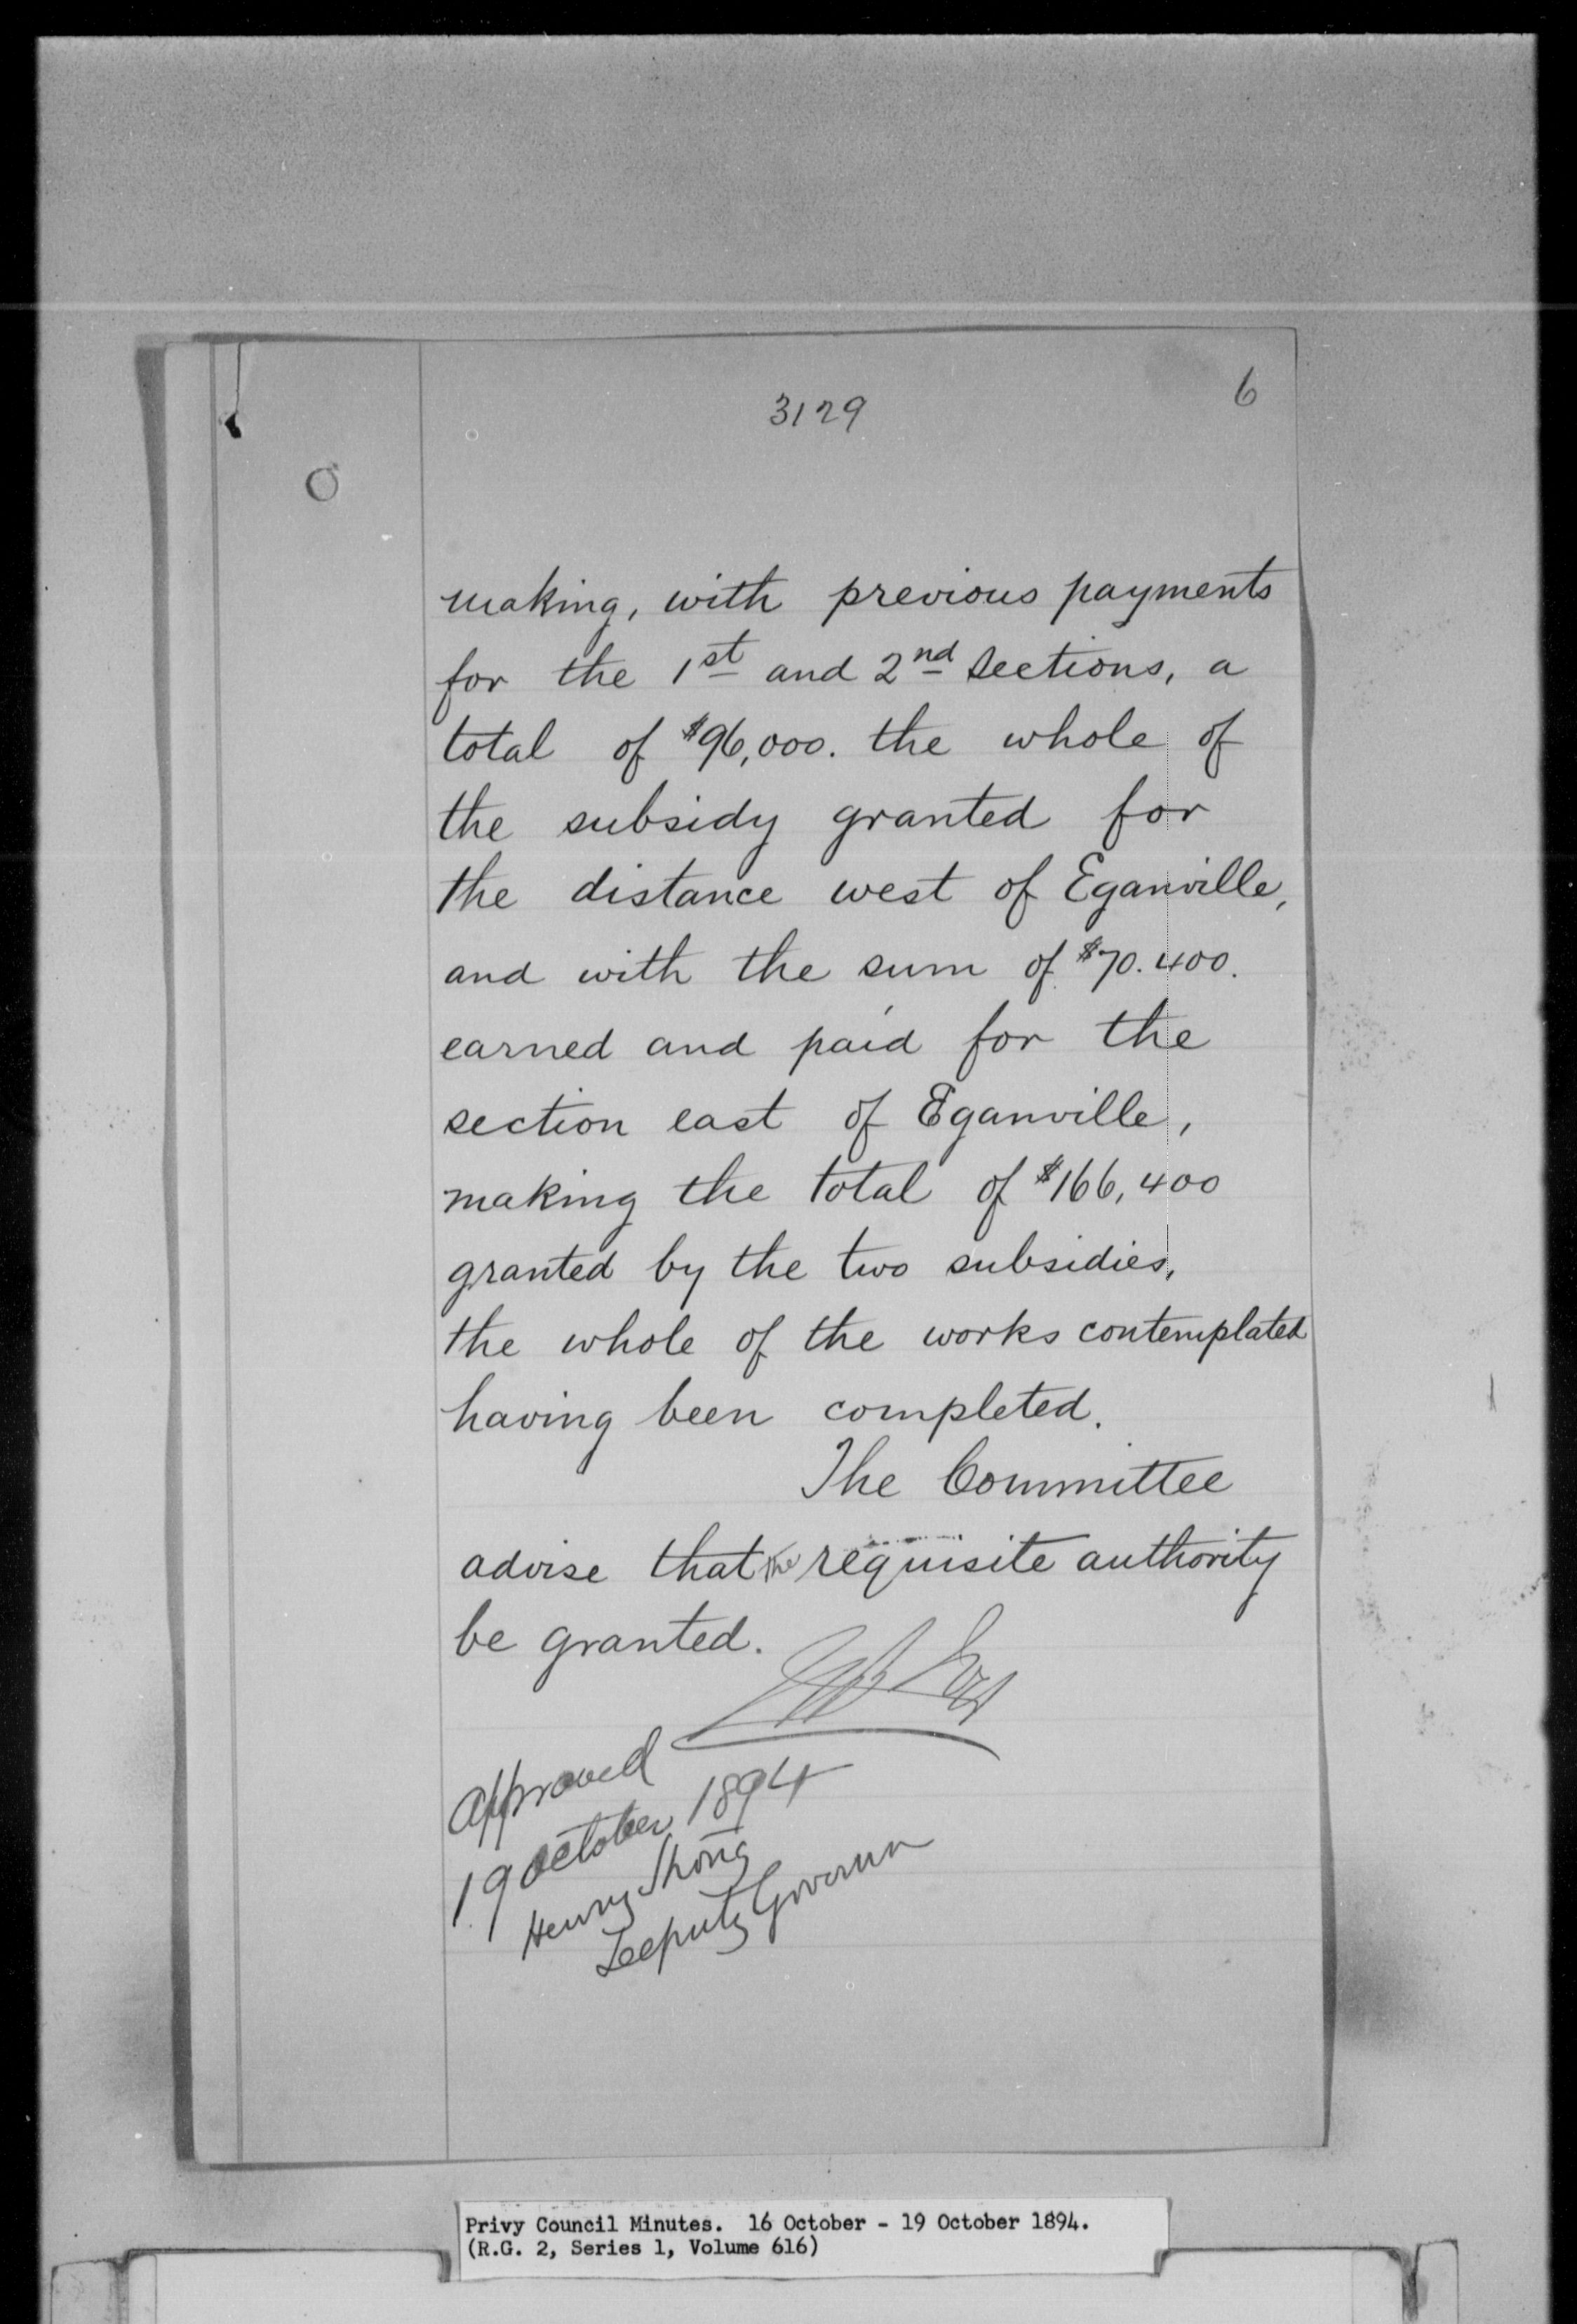 3129
6
making, with previous payments
for the 1st and 2nd Sections, a
total of $96,000. the whole of
the subsidy granted for
the distance west of Eganville,
and with the sum of $70.400.
earned and paid for the
section east of Eganville,
making the total of $166,400
granted by the two subsidies,
the whole of the works contemplated
having been completed.
The Committee
advise that the requisite authority
be granted.
Approved
19 October 1894
Henry Strong
Deputy Governor
Privy Council Minutes. 16 October - 19 October 1894.
(R.G. 2, Series 1, Volume 616)